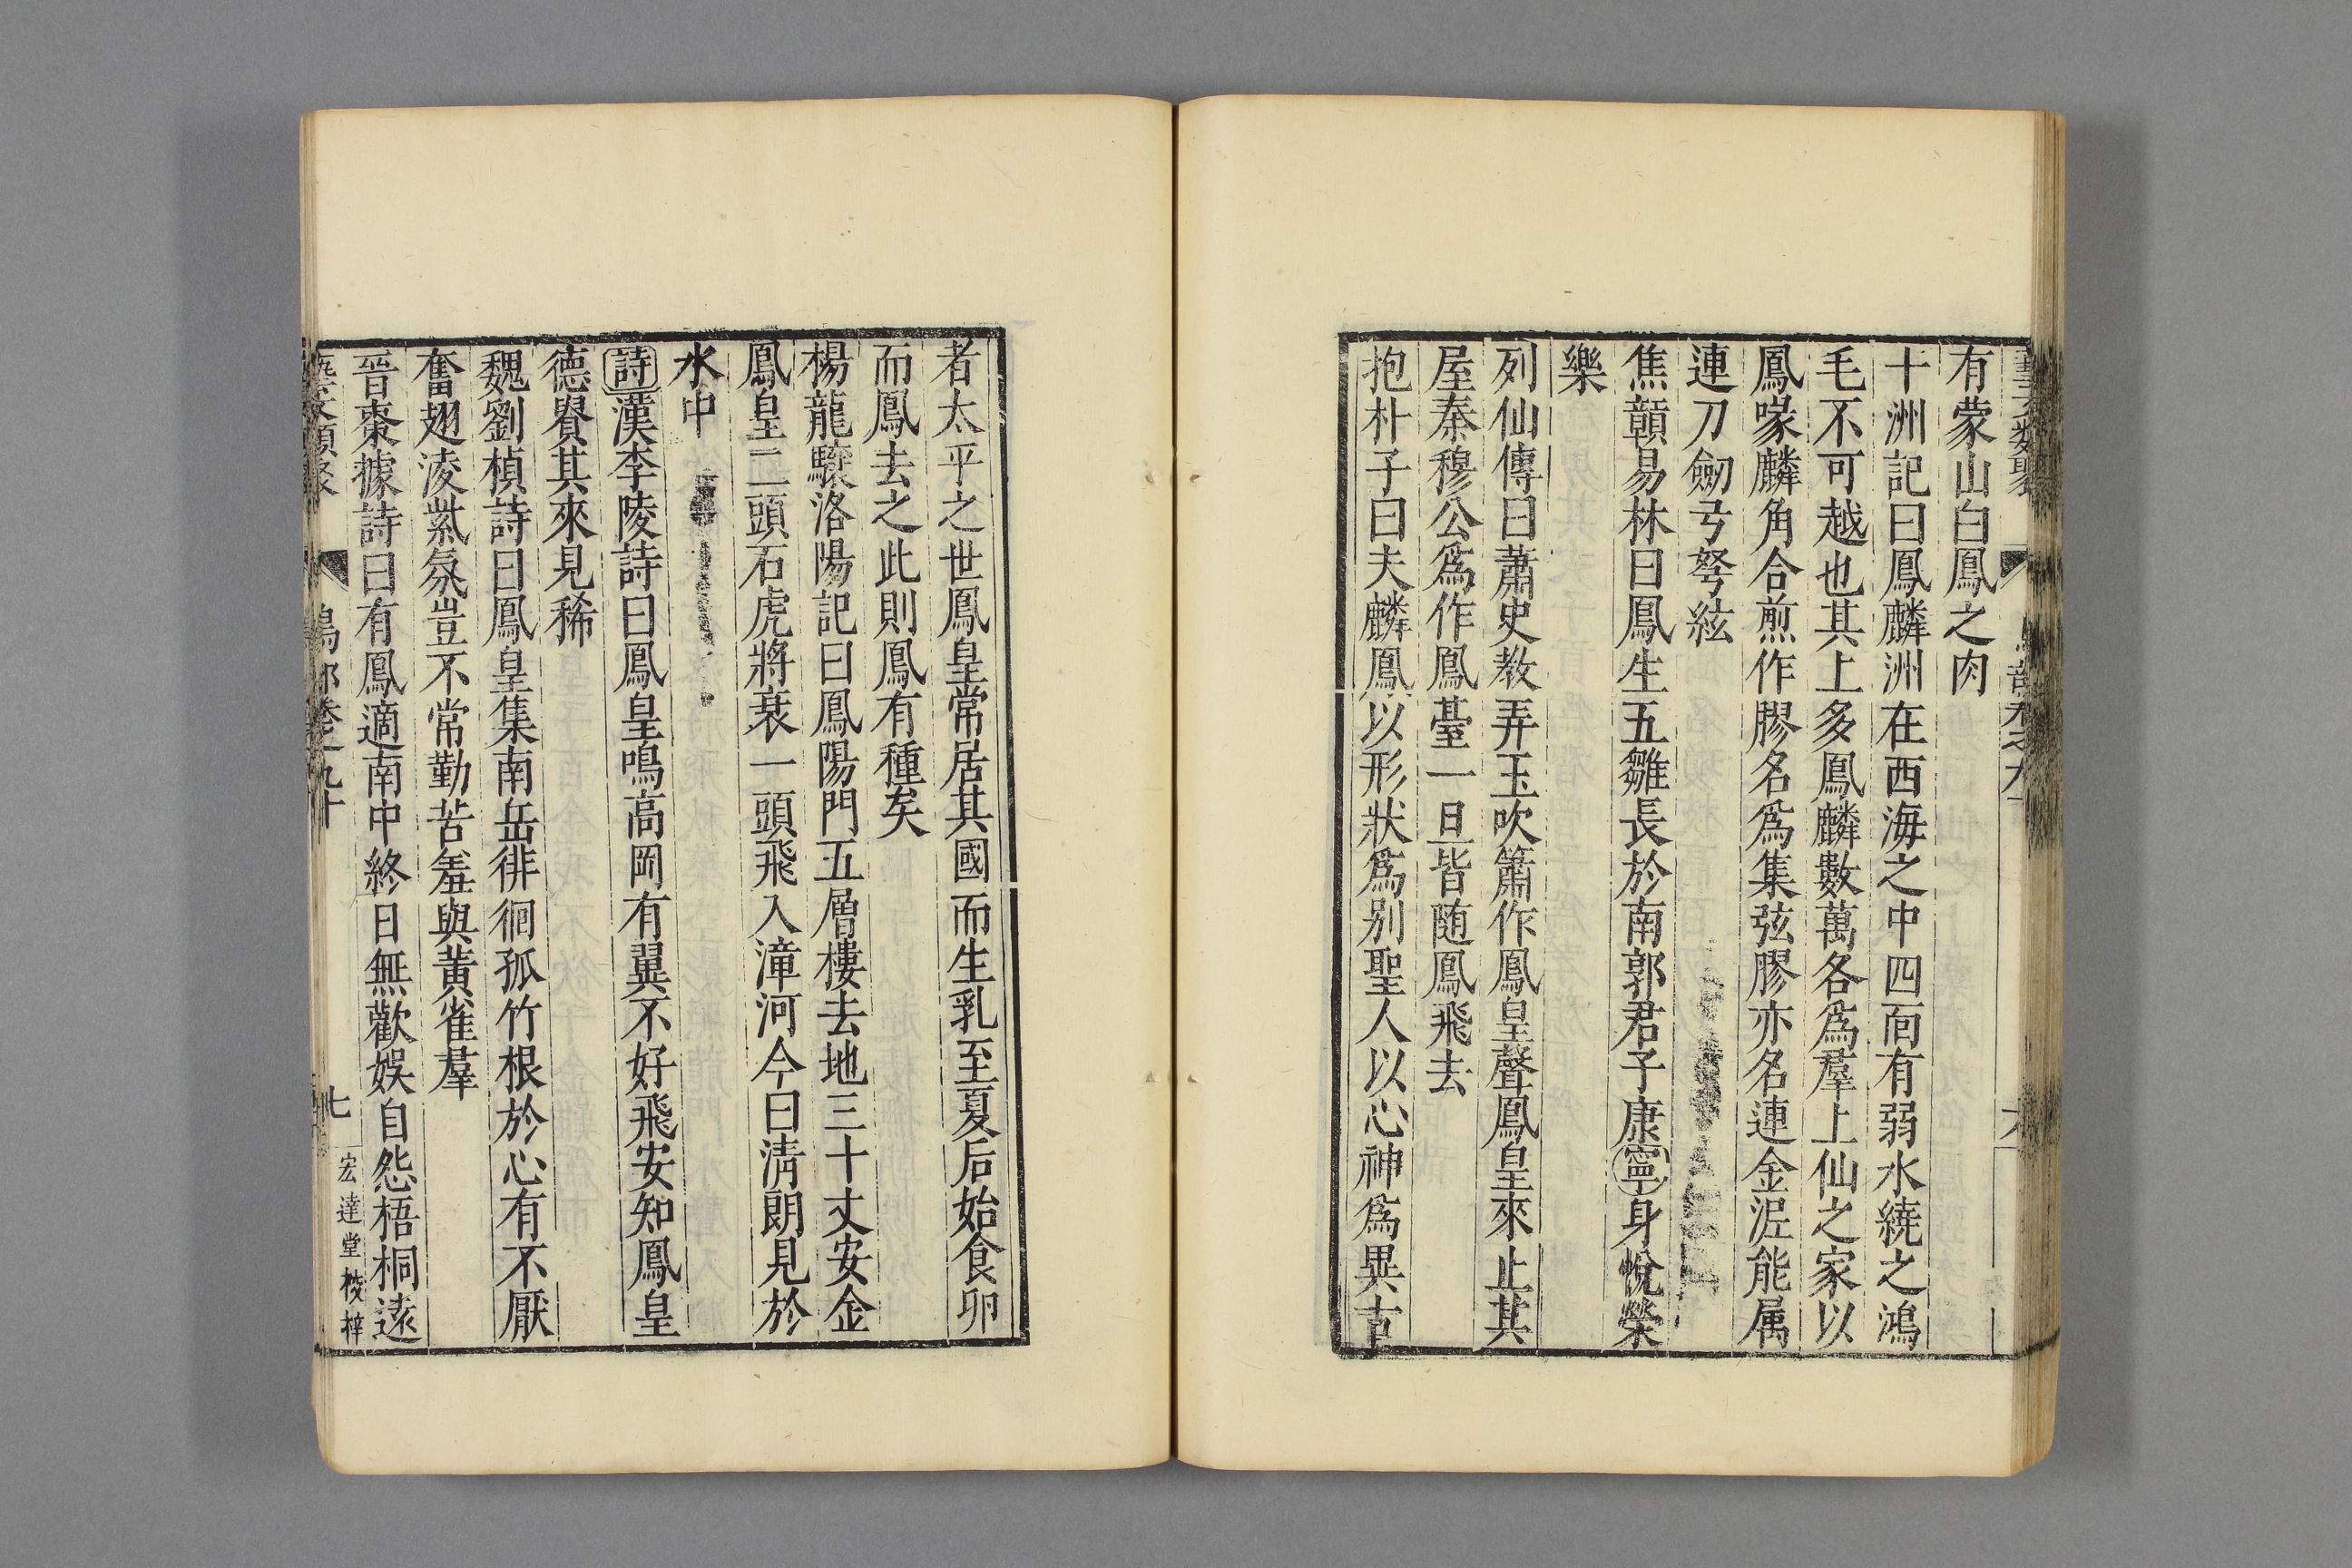 有蒙山白鳳之肉
十洲記曰鳳麟洲在西海之中四面有弱水繞之鴻
毛不可越也其上多鳳麟數萬各爲羣上仙之家以
鳳喙麟角合煎作膠名爲集弦膠亦名連金泥能属
連刀劒弓弩絃
焦贛易林曰鳳生五雛長於南郭君子康寧身悅榮
樂
列仙傳曰蕭史教弄玉吹簫作鳳皇聲鳳皇來止其
屋秦穆公爲作鳳臺一旦皆随鳳飛去
抱朴子曰夫麟鳳以形狀爲别聖人以心神爲異古
者太平之世鳳皇常居其國而生乳至夏后始食卵
而鳳去之此則鳳有種矣
楊龍驤洛陽記曰鳳陽門五層樓去地三十丈安金
鳳皇二頭石虎將衰一頭飛入漳河今日清朗見於
水中
詩漢李陵詩曰鳳皇鳴高岡有翼不好飛安知鳳皇
德貴其來見稀
魏劉楨詩曰鳳皇集南岳徘徊孤竹根於心有不厭
奮翅淩紫氛豈不常勤苦羞與黃雀羣
晉棗據詩曰有鳳適南中終日無歡娱自怨梧桐遠
藝文類聚 鳥部卷之九十 七
宏達堂校梓